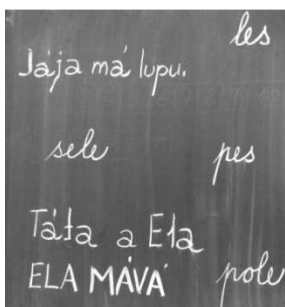 les
Jája má lupu.
sele pes
Táta a Ela
ELA MÁVÁ pole